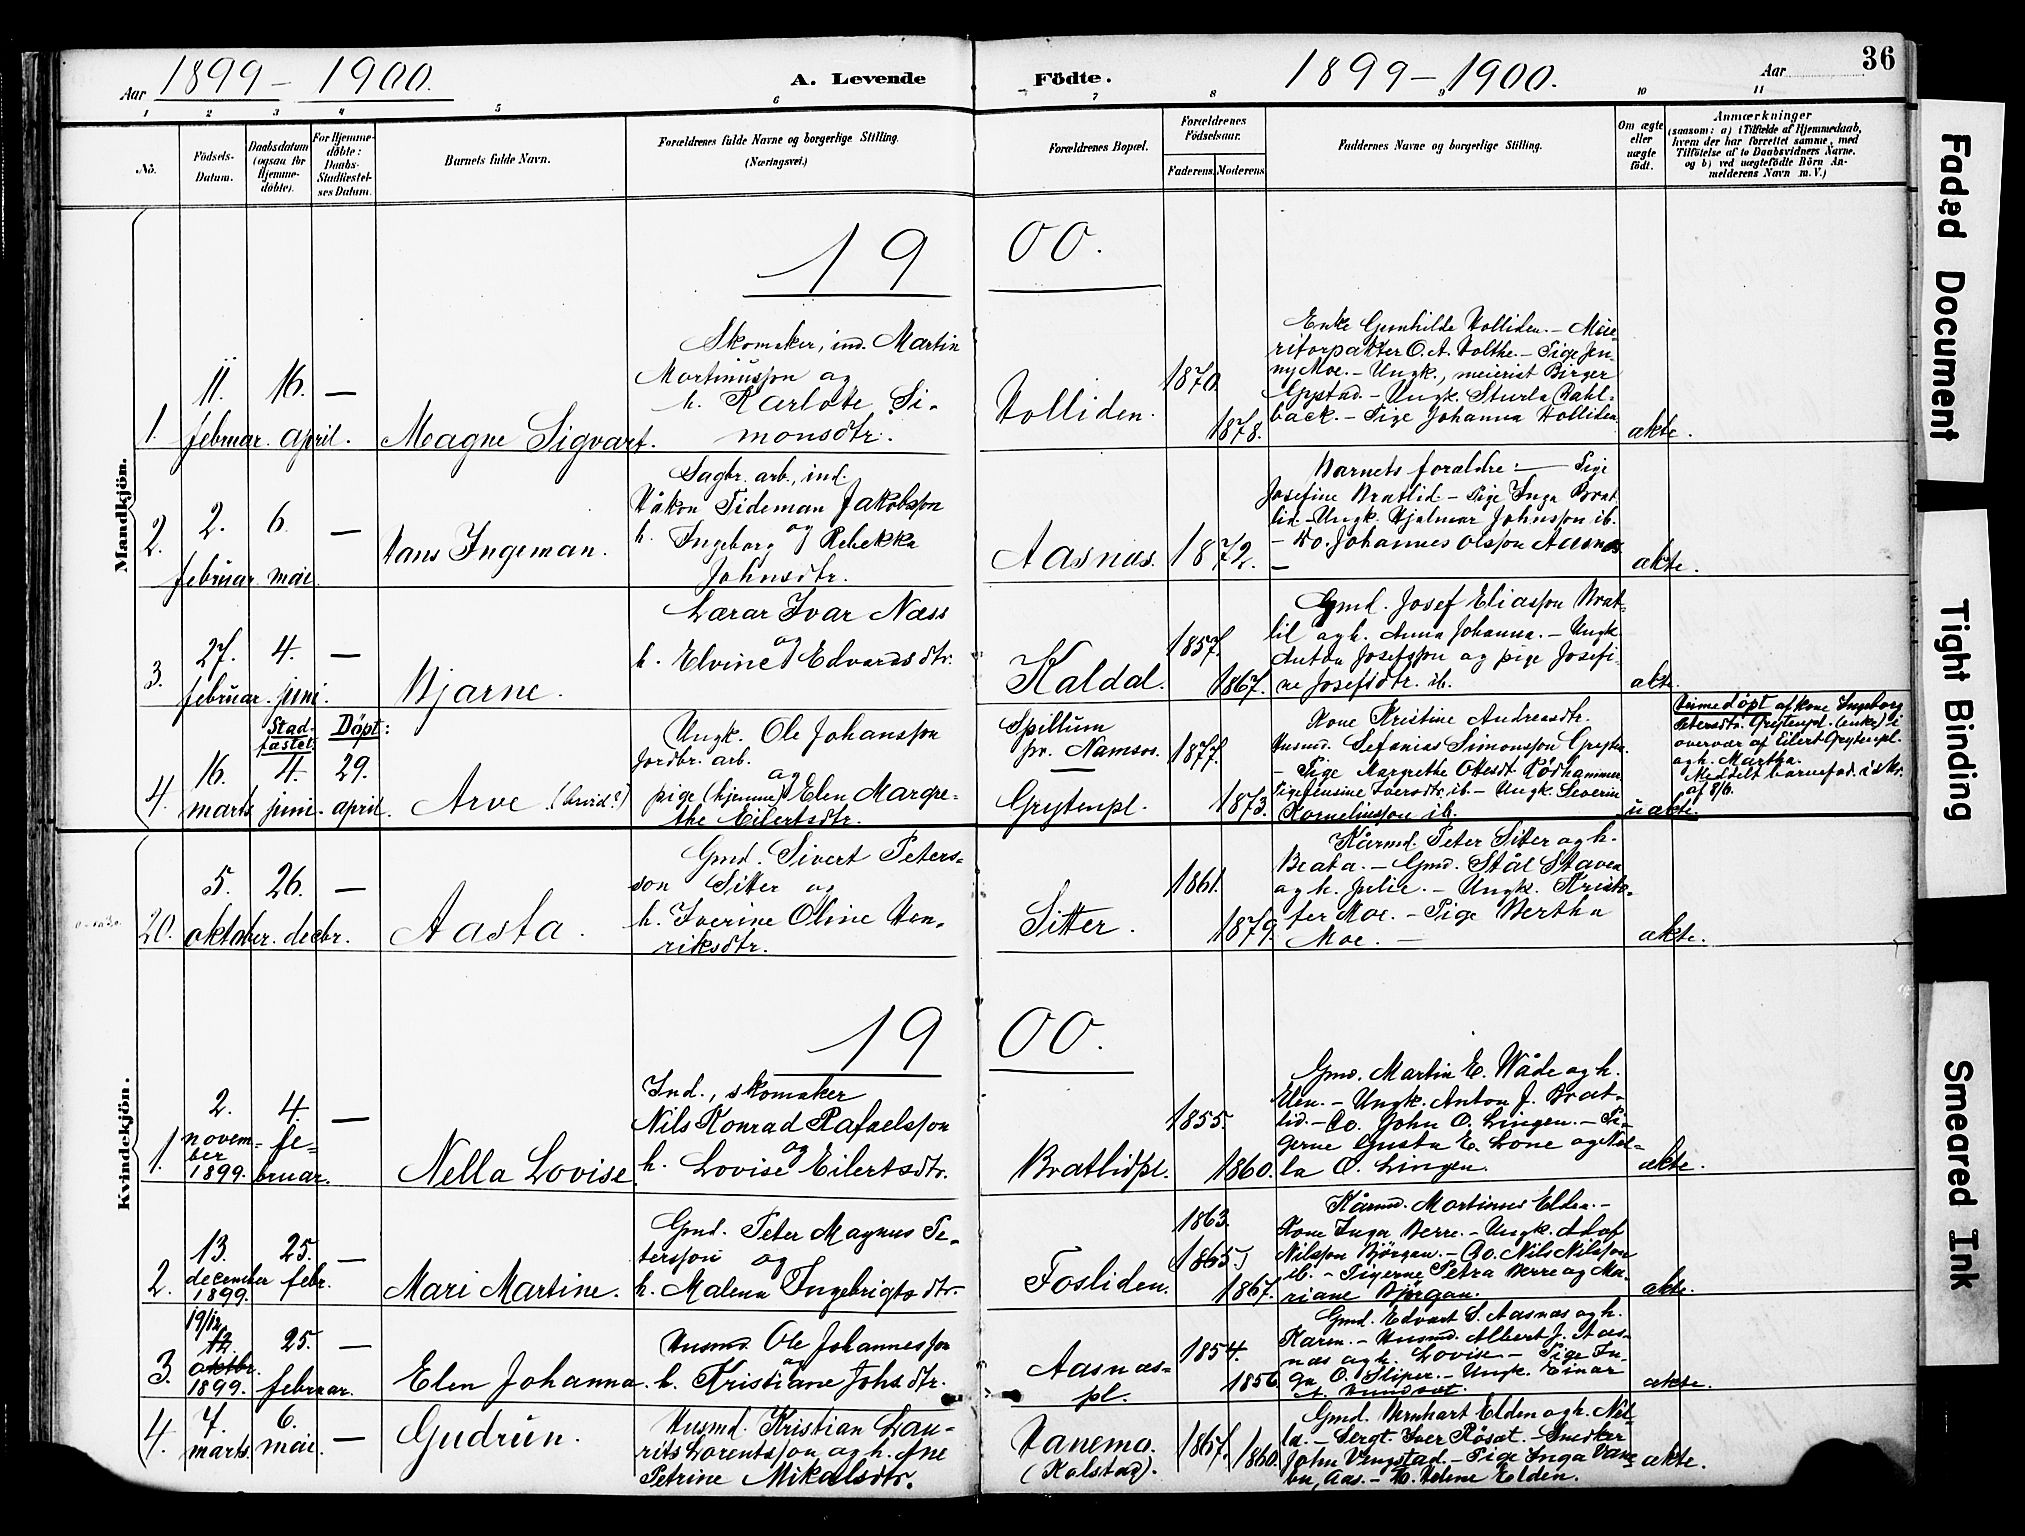 Aar 1899 - 1900.
A. Levende Födte.
1899 - 1900.
Aar
36
1 2 3 4 5 6 7 8 9 10 11
No.
Födsels-
Datum.
Daabsdatum
(ogsaa for
Hjemme-
döbte).
For Hjemme-
döbte:
Daabs-
Stadfæstel-
ses Datum.
Barnets fulde Navn.
Forældrenes fulde Navne og borgerlige Stilling.
(Næringsvei.)
Forældrenes Bopæl.
Forældrenes
Födselsaar.
Faderens. Moderens.
Faddernes Navne og borgerlige Stilling.
Om ægte
eller
uægte
födt.
Anmærkninger
(saasom: a) i Tilfælde af Hjemmedaab,
hvem der har forrettet samme, med
Tilföielse af to Daabsvidners Navne,
og b) ved uægtefödte Börn An-
melderens Navn m. V.)
Mandkjön.
1900.
1.
11.
februar.
16.
april.
—
Magne Sigvart.
Skomaker, ind. Martin
Martinusson og
h. Karlote Si-
monsdtr.
Holliden.
1870.
1878.
Enke Gunhilde Holliden. — Mei-
riforpakter O. A. Holthe. — Pige Jen-
ny Moe. — Ungk., meierist Birger
Opstad. — Ungk. Sturla Dahl-
back. — Pige Johanna Holliden
ækte.
2.
2.
februar
6.
mai.
—
Hans Ingeman.
Sagbr. arb., ind.
Håkon Tideman Jakobsson
og
h. Ingeborg Rebekka
Johnsdtr.
Aasnæs.
1872.
Barnets forældre: — Pige
Josefine Bratlid — Pige Inga Brat-
lid. — Ungk. Hjalmar Johnsson ib.
— Do. Johannes Olsson Aasnæs
—
ækte.
3.
27.
februar.
4.
juni.
—
Bjarne.
Lærar Ivar Næss
og
h. Elvine Edvardsdtr.
Kaldal.
1857.
1867.
Gmd. Josef Eliasson Brat-
lid og h. Anna Johanna. — Ungk.
Anton Josefsson og pige Josefi-
ne Josefsdtr. ib.
ækte.
4.
16.
marts
Stad-
fæstet:
4.
juni.
Döpt:
29.
april.
Arve (Arvid?)
Ungk. Ole Johansson
jordbr. arb.
og
pige (hjemme) Elen Margre-
the Eilertsdtr.
Spillum
pr. Namsos.
Grytenpl.
1877.
1873.
Kone Kristine Andreasdtr.
Husmd. Sefanias Simonsson Gryten
— Pige Margrethe Ottesdt. Rödhammer
Pige Jensine Iversdtr. ib. — Ungk. Severin
Kornelinsson ib.
uækte.
Hjemedöpt af kone Ingeborg
Petersdtr. Grytenpl. (enke) i
overvær af Eilert Grytenpl.
og h. Martha.
Meddelt barnefad. i skr.
af 8/6.
20.
5.
oktober.
26.
decbr.
—
Aasta.
Gmd. Sivert Peters-
son Sitter og
h. Iverine Oline Hen-
riksdtr.
Sitter.
1861.
1879.
Kårmd. Peter Sitter og h.
Beata. — Gmd. Ståle Staven
og h. Julie. — Ungk. Kristo-
fer Moe. — Pige Bertha
Moe. —
ækte.
Kvindekjön.
1900.
1.
2.
novem-
ber
1899.
4.
fe-
bruar.
—
Nella Lovise.
Ind., skomaker
Nils Konrad Rafaelsson
og
h. Lovise Eilertsdtr.
Bratlidpl.
1855.
1860.
Gmd. Martin E. Wåde og h.
Elen. — Ungk. Anton J. Brat-
lid. — Do. John O. Lingen. — Pi-
gerne Gusta E. Lone og Nel-
la O. Lingen.
ækte.
2.
13.
december
1899.
25.
febr.
—
Mari Martine.
Gmd. Peter Magnus Pe-
tersson og
h. Malena Ingebrigtsdtr.
Fosliden.
1863.
1865
1867.
Kårmd. Martinus Elden. —
Kone Inga Berre. — Ungk. Adolf
Nilsson Björgan. — Do. Nils Nilsson
ib. — Pigerne Petra Berre og Ma-
riane Björgan.
ækte.
3.
19/12
oktbr.
1899.
25.
februar.
—
Elen Johanna.
Husmd. Ole Johannesson
og
h. Kristiane Johsdtr.
Aasnæs-
pl.
1854.
1856.
Gmd. Edvart S. Aasnæs og h.
Karen. — Husmd. Albert J. Aas-
næs og h. Lovise — Pige In-
ga O. Sliper. — Ungk. Einar
ækte.
4.
7.
marts
6.
mai.
—
Gudrun.
Husmd. Kristian Lau-
rits Lorentsson og h. Ane
Petrine Mikalsdtr.
Vanemo.
(Kolstad).
1867.
1860.
Gmd. Bernhart Elden og h. Nel-
la. — Sergt. Iver Röset. — Snedker
John Vengstad. — Pige Inga Vane-
bu, Aas. — Do. Helene Elden.
ækte.
Faded Document
Tight Binding
Smeared Ink